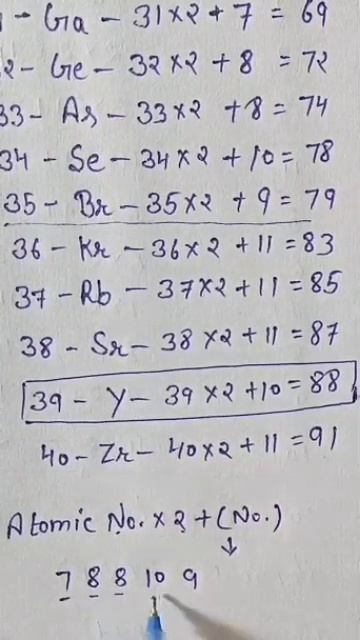 - Ga - 31×2 + 7 = 69
2 - Ge - 32×2 + 8 = 72
33 - As - 33×2 + 8 = 74
34 - Se - 34×2 + 10 = 78
35 - Br - 35×2 + 9 = 79
36 - Kr - 36×2 + 11 = 83
37 - Rb - 37×2 + 11 = 85
38 - Sr - 38×2 + 11 = 87
39 - Y - 39×2 + 10 = 88
40 - Zr - 40×2 + 11 = 91
Atomic No. × 2 + (No.)
↓
7 8 8 10 9